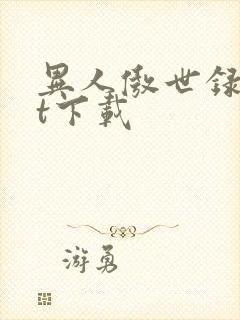 異人傲世録
t下載
游勇